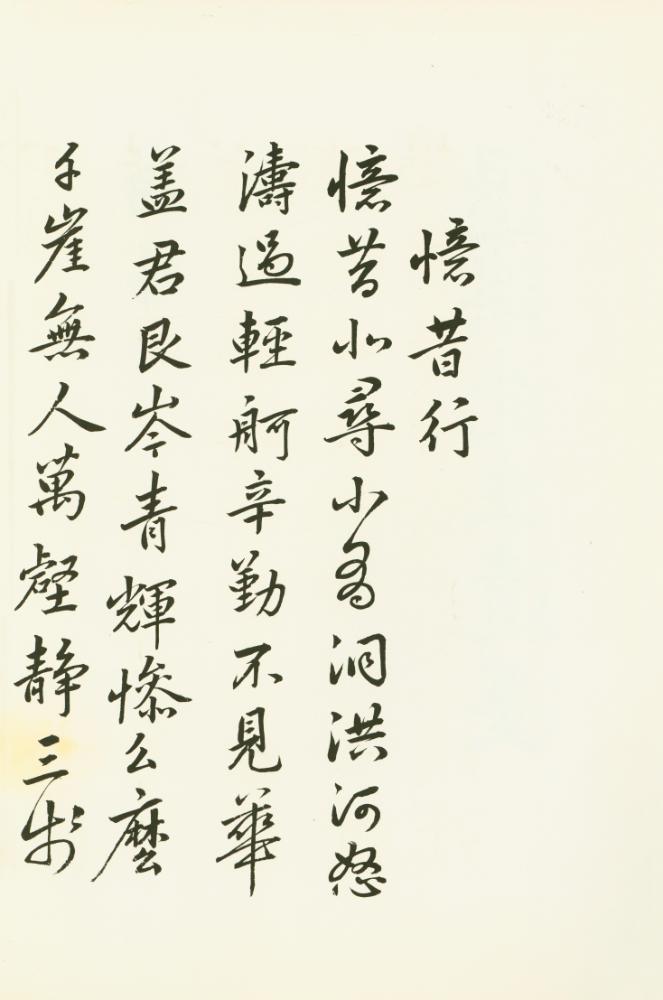 憶昔行
憶昔北尋小有洞洪河怒
濤過輕舸辛勤不見華
盖君艮岑青輝慘么麼
千崖無人萬壑静三步